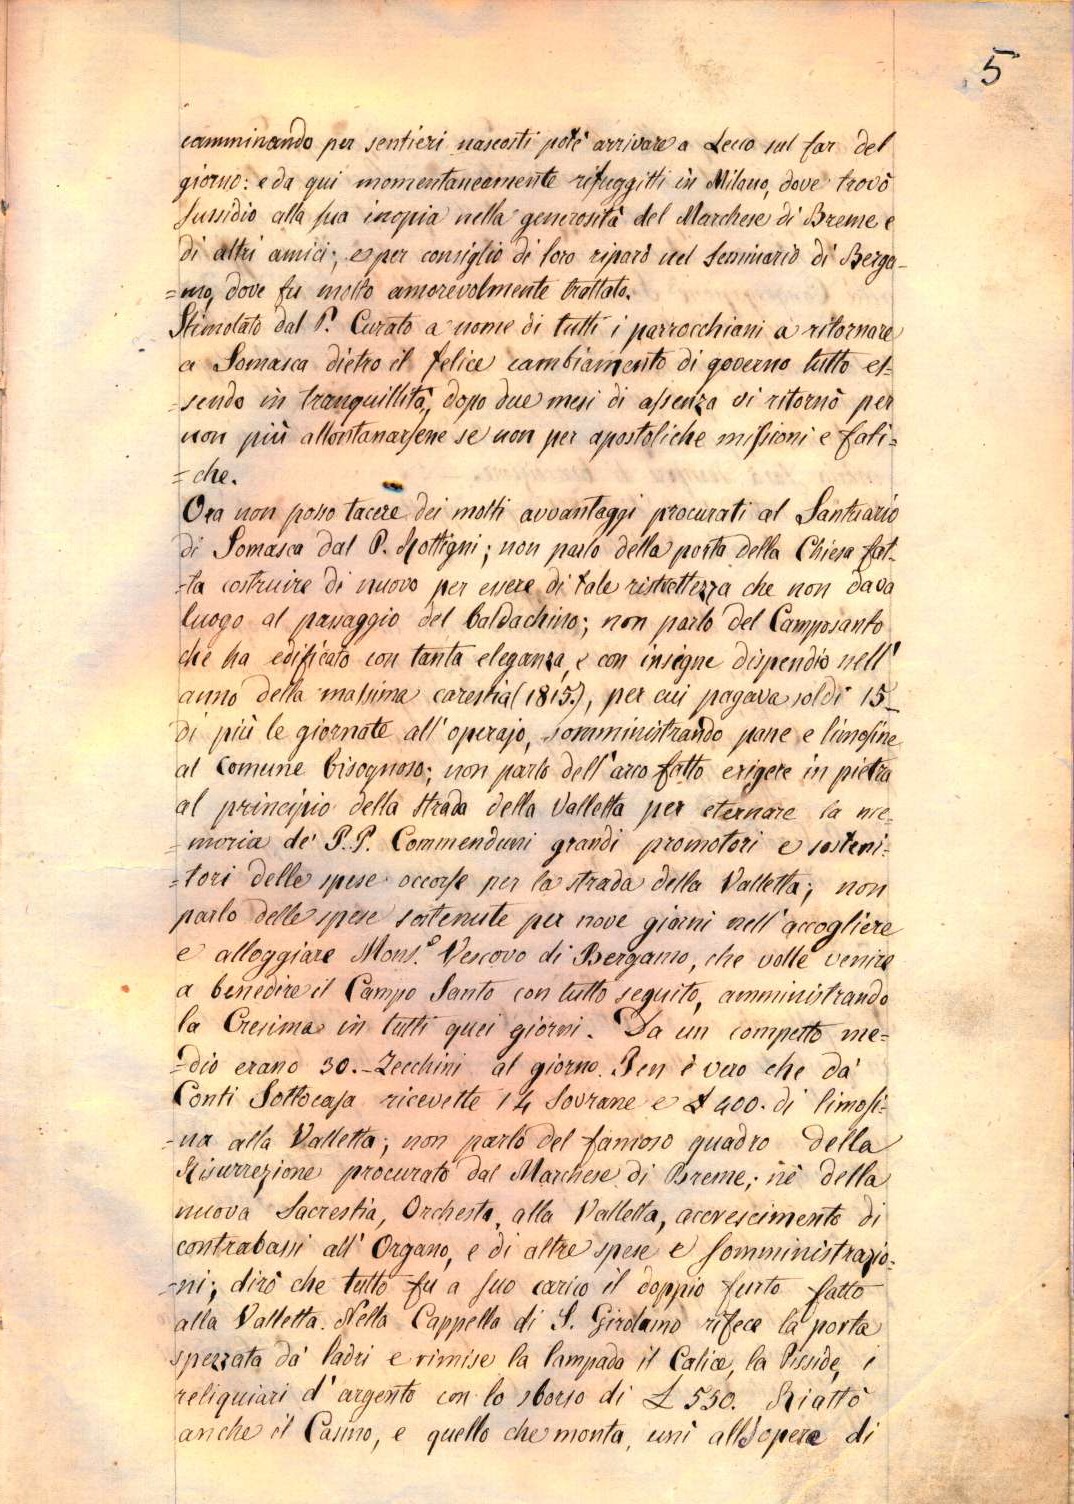 5
camminando per sentieri nascosti potè arrivare a Lecco sul far del
giorno: e da qui momentaneamente rifuggitti in Milano, dove trovò
sussidio alla sua inopia nella generosità del Marchese di Breme e
di altri amici; e per consiglio di loro riparò nel Seminario di Berga-
=mo, dove fu molto amorevolmente trattato.
Stimolato dal P. Curato a nome di tutti i parrocchiani a ritornare
a Somasca dietro il felice cambiamento di governo tutto es-
=sendo in tranquillità, dopo due mesi di assenza vi ritornò per
non più allontanarsene se non per apostoliche missioni e fati=
=che.
Ora non posso tacere dei molti avvantaggi procurati al Santuario
di Somasca dal P. Rottigni; non parlo della porta della Chiesa fat-
-ta costruire di nuovo per essere di tale ristrettezza che non dava
luogo al passaggio del baldachino; non parlo del Camposanto
che ha edificato con tanta eleganza, e con insigne dispendio nell'
anno della massima carestia (1815.), per cui pagava soldi 15
di più le giornate all'operajo, somministrando pane e limosine
al Comune bisognoso; non parlo dell'arco fatto erigere in pietra
al principio della strada della Valletta per eternare la me-
-moria de' P.P. Commenduni grandi promotori e sosteni-
=tori delle spese occorse per la strada della Valletta; non
parlo delle spese sostenute per nove giorni nell'accogliere
e alloggiare Mons.e Vescovo di Bergamo, che volle venire
a benedire il Campo Santo con tutto seguito, amministrando
la Cresima in tutti quei giorni. Da un competto me=
=dio erano 30.- Zecchini al giorno. Ben è vero che da'
Conti Sottocasa ricevette 14 Sovrane e £ 400. di limosi-
-na alla Valletta; non parlo del famoso quadro della
Risurrezione procurato dal Marchese di Breme; nè della
nuova Sacrestia, Orchesta, alla Valletta, accrescimento di
contrabassi all'Organo, e di altre spese e somministrazio-
-ni; dirò che tutto fu a suo carico il doppio furto fatto
alla Valletta. Nella Cappella di S. Girolamo rifece la porta
spezzata da' ladri e rimise la lampada il Calice, la Pisside, i
reliquiari d'argento con lo sborso di £ 550. Riattò
anche il Casino, e quello che monta, unì all'opera di